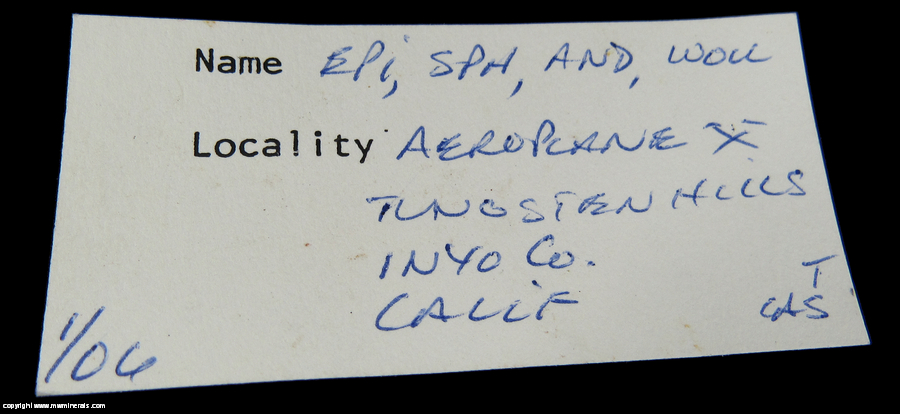 Name EPi, SPH, AND, WOLL
Locality AEROPLANE X
TUNGSTEN HILLS
INYO CO.
CALIF
T
CAS
1/06
copyright www.mwminerals.com